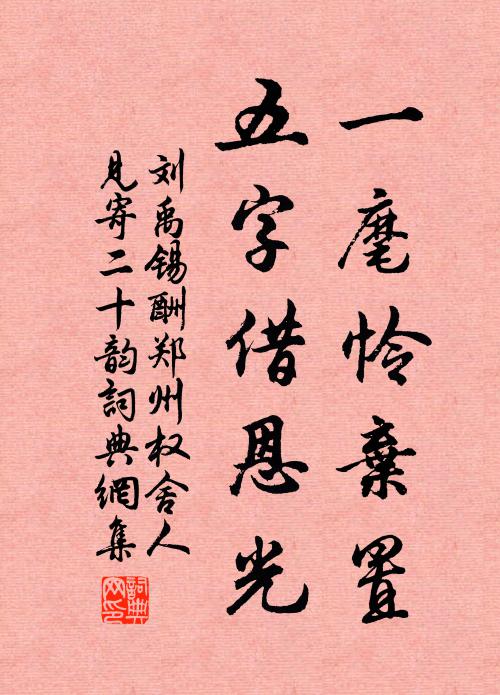 一麾怜棄置
五字借恩光
刘禹锡酬郑州权舍人
見寄二十韵詞典網集
詞典
网印